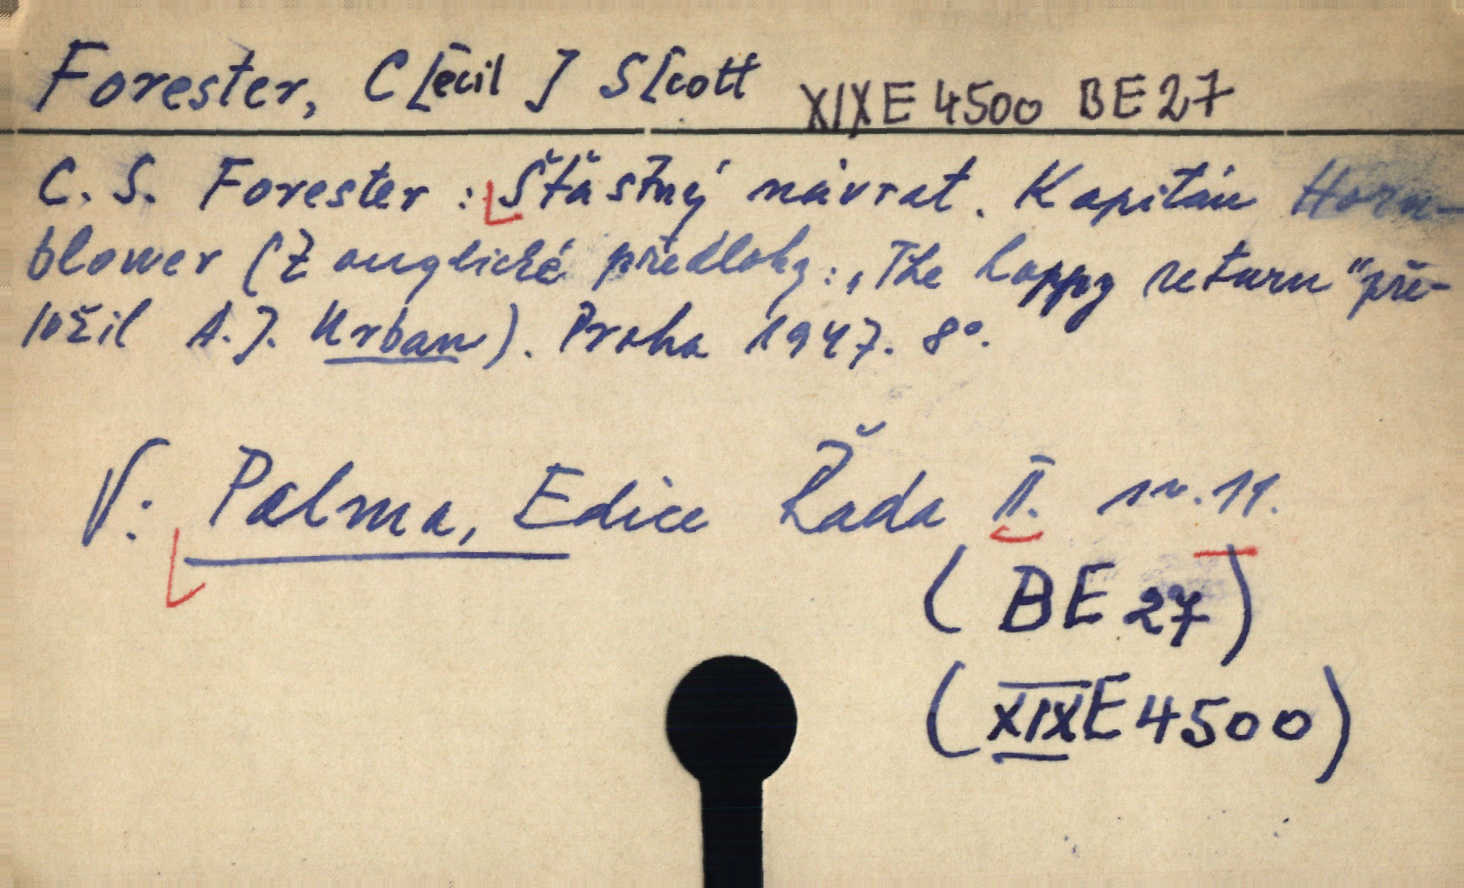 Forester, C[ecil] S[cott XIX E 4500 BE 27
C. S. Forester: Šťastný návrat. Kapitán Horn-
blower (Z anglické předlohy: „The happy return" pře-
ložil A. J. Urban). Praha 1947. 8°.
V: Palma, Edice Řada II. sv. 11.
(BE 27)
(XIX E 4500)